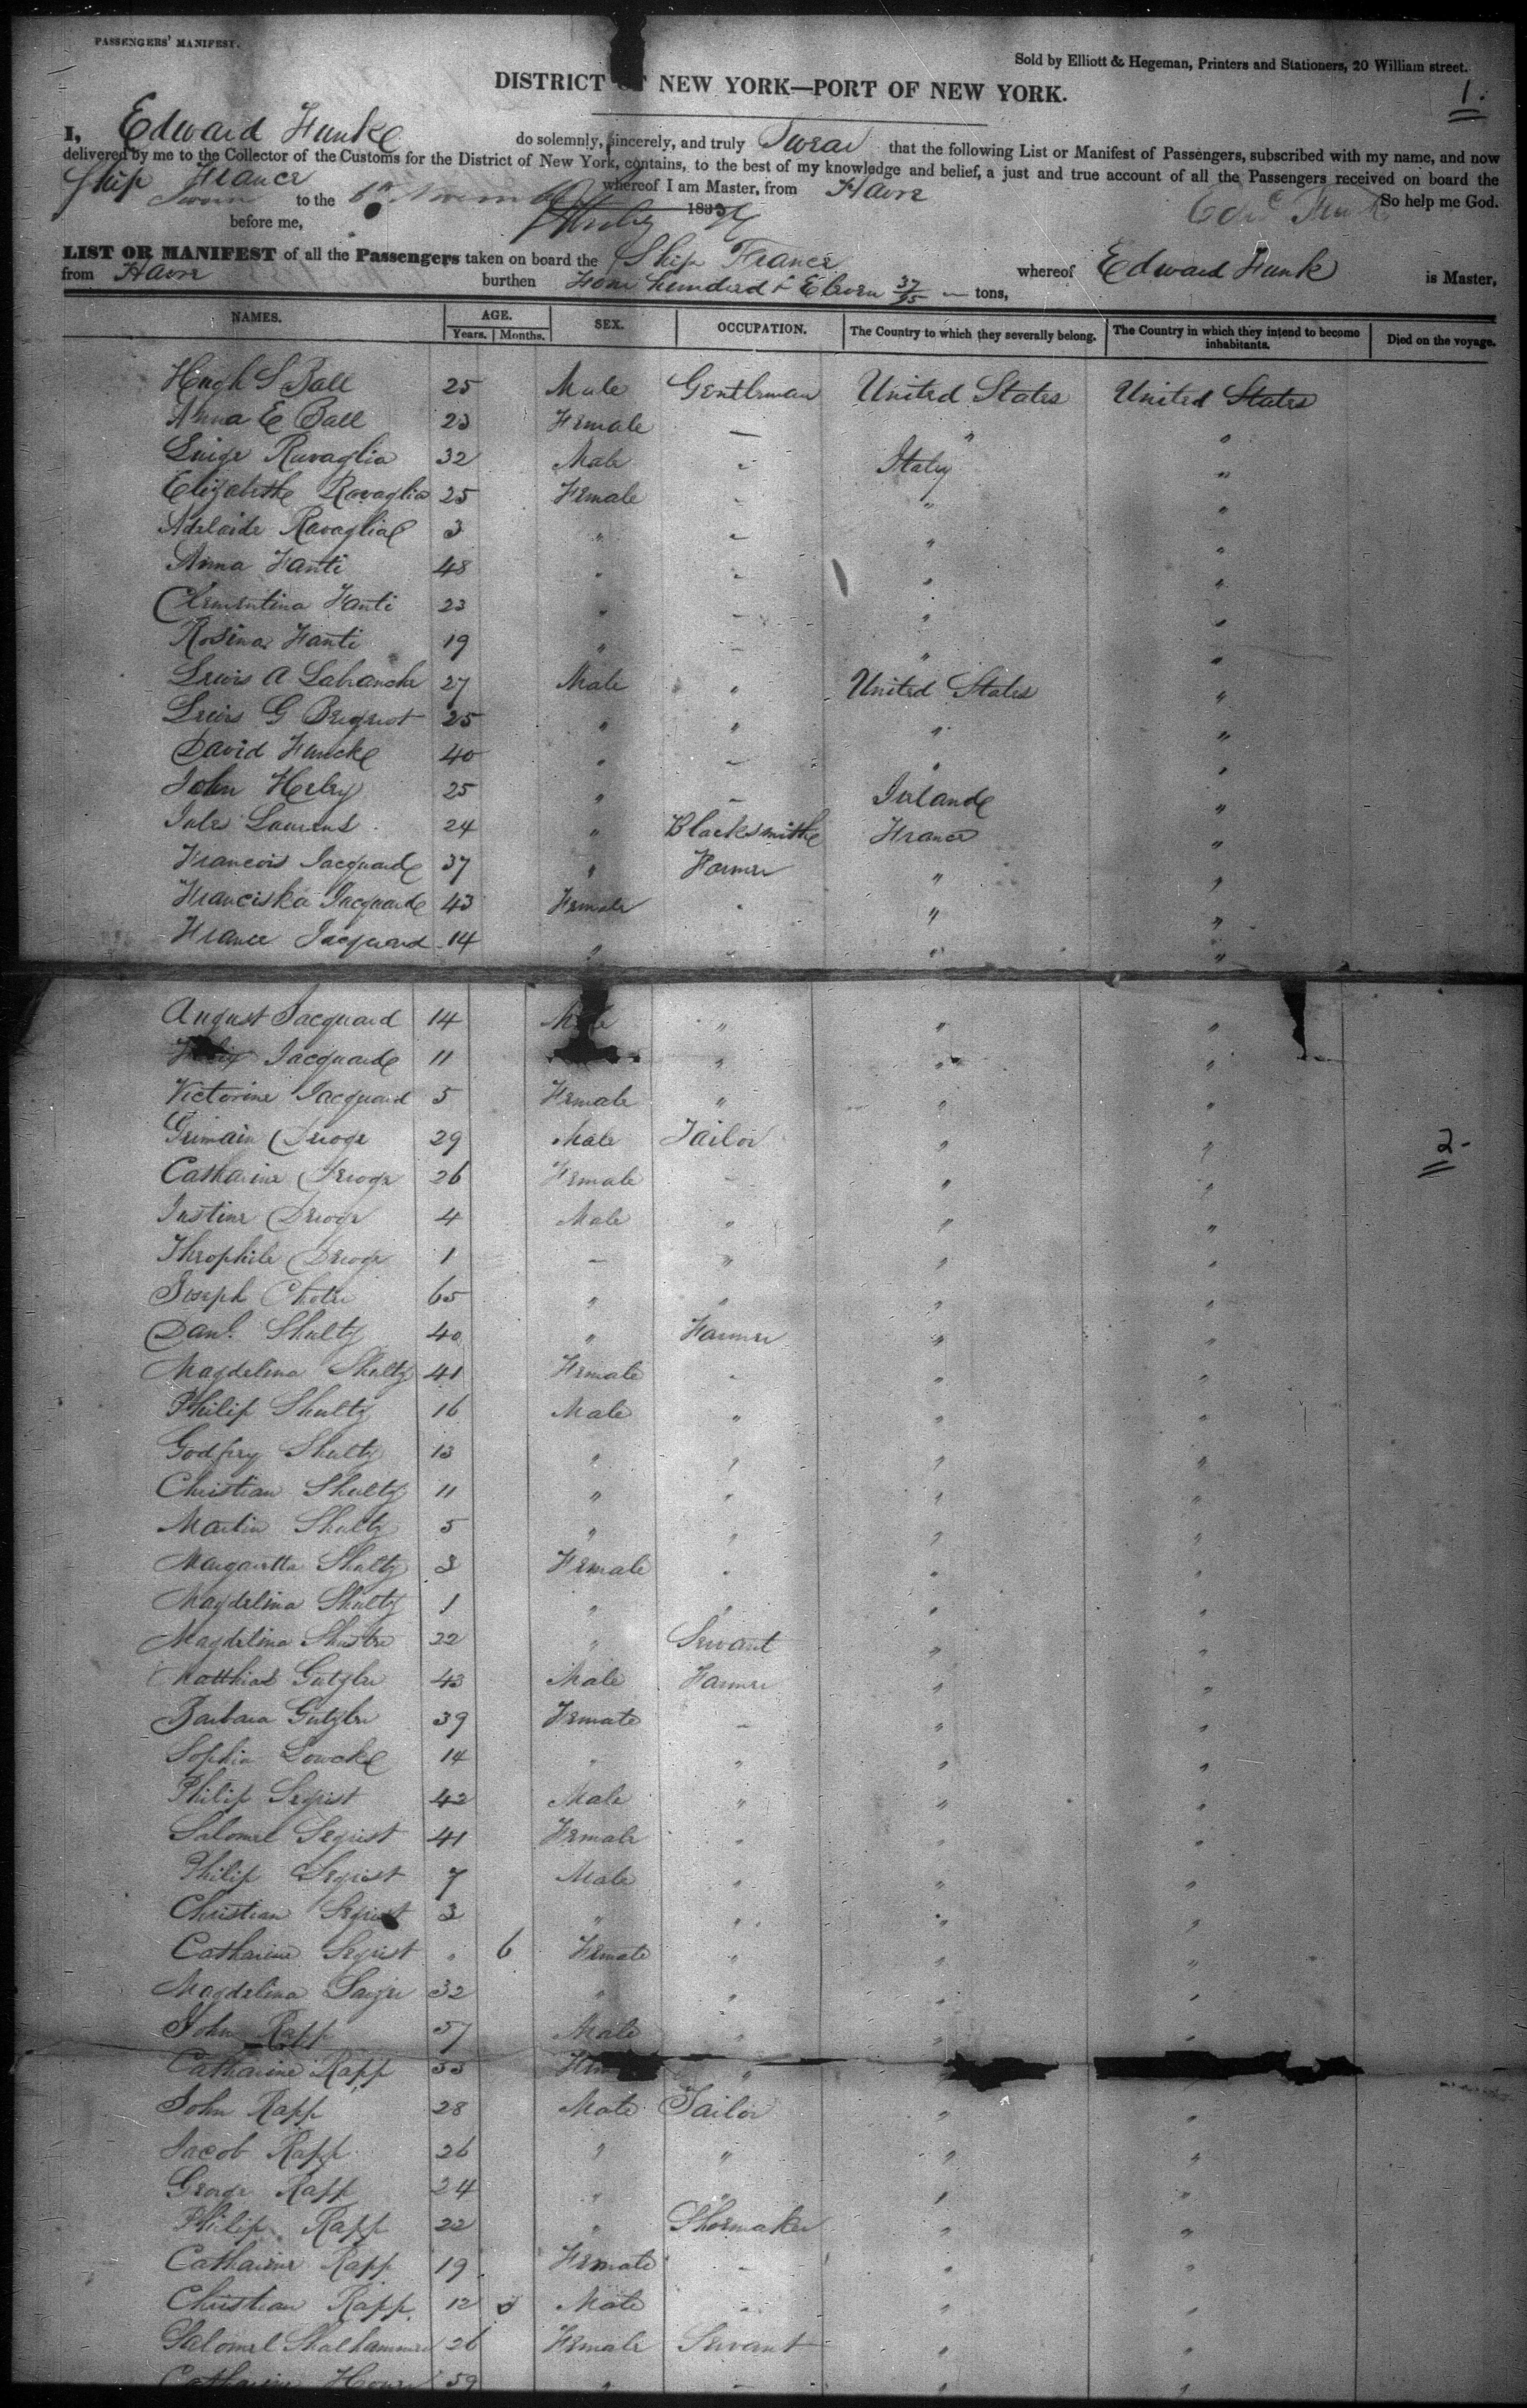 PASSENGERS' MANIFEST.
Sold by Elliott & Hegeman, Printers and Stationers, 20 William street.
DISTRICT OF NEW YORK—PORT OF NEW YORK.
1.
I, Edward Funke do solemnly, sincerely, and truly Swear that the following List or Manifest of Passengers, subscribed with my name, and now
delivered by me to the Collector of the Customs for the District of New York, contains, to the best of my knowledge and belief, a just and true account of all the Passengers received on board the
Ship France whereof I am Master, from Havre
Sworn to the 6th November 183 So help me God.
before me,
LIST OR MANIFEST of all the Passengers taken on board the Ship France whereof Edward Funk is Master,
from Havre burthen Four hundred & Eleven 37/95 — tons,
NAMES. AGE. Years. Months. SEX. OCCUPATION. The Country to which they severally belong. The Country in which they intend to become inhabitants. Died on the voyage.
Hugh S Ball 25 Male Gentleman United States United States
Anna E Ball 23 Female — " "
Luige Ravaglia 32 Male - Italy "
Elizabeth Ravaglia 25 Female - " "
Adelaide Ravaglia 3 " - " "
Anna Fanti 48 " - " "
Clementina Fanti 23 " - " "
Rosina Fanti 19 " - " "
Lewis A Labranche 27 Male " United States "
Lewis G 25 " " " "
David Funcke 40 " - " "
John 25 " - Ireland "
Jules Laurens 24 " Blacksmith France "
Francois Jacquard 37 " Farmer " "
Franciska Jacquard 43 Female " " "
France Jacquard 14 " " " "
August Jacquard 14 Male " " "
Jacquard 11 " " "
Victorine Jacquard 5 Female " " "
2.
29 Male Tailor " "
Catharine 26 Female - " "
Justine 4 Male " " "
Theophile 1 — " " "
Joseph 65 " " " "
Danl. Shultz 40 " Farmer " "
Magdelina Shultz 41 Female - " "
Philip Shultz 16 Male " " "
Godfrey Shultz 13 " " " "
Christian Shultz 11 " " " "
Martin Shultz 5 " " " "
Margaretta Shultz 3 Female " " "
Magdelina Shultz 1 " " " "
Magdelina 22 " Servant " "
Matthias Gutzler 43 Male Farmer " "
Barbara Gutzler 39 Female - " "
Sophia 14 " " " "
Philip Segrist 42 Male " " "
Salomel Segrist 41 Female " " "
Philip Segrist 7 Male " " "
Christian Segrist 3 " " " "
Catharine Segrist " 6 Female " " "
Magdelina 32 " " " "
John Rapp 57 Male " " "
Catharine Rapp 55 "
John Rapp 28 Male Tailor " "
Jacob Rapp 26 " " " "
George Rapp 24 " " " "
Philip Rapp 22 " Shoemaker " "
Catharine Rapp 19 Female - " "
Christian Rapp 12 Male - " "
Salomel 26 Female Servant " "
Catharine 59 " - " "